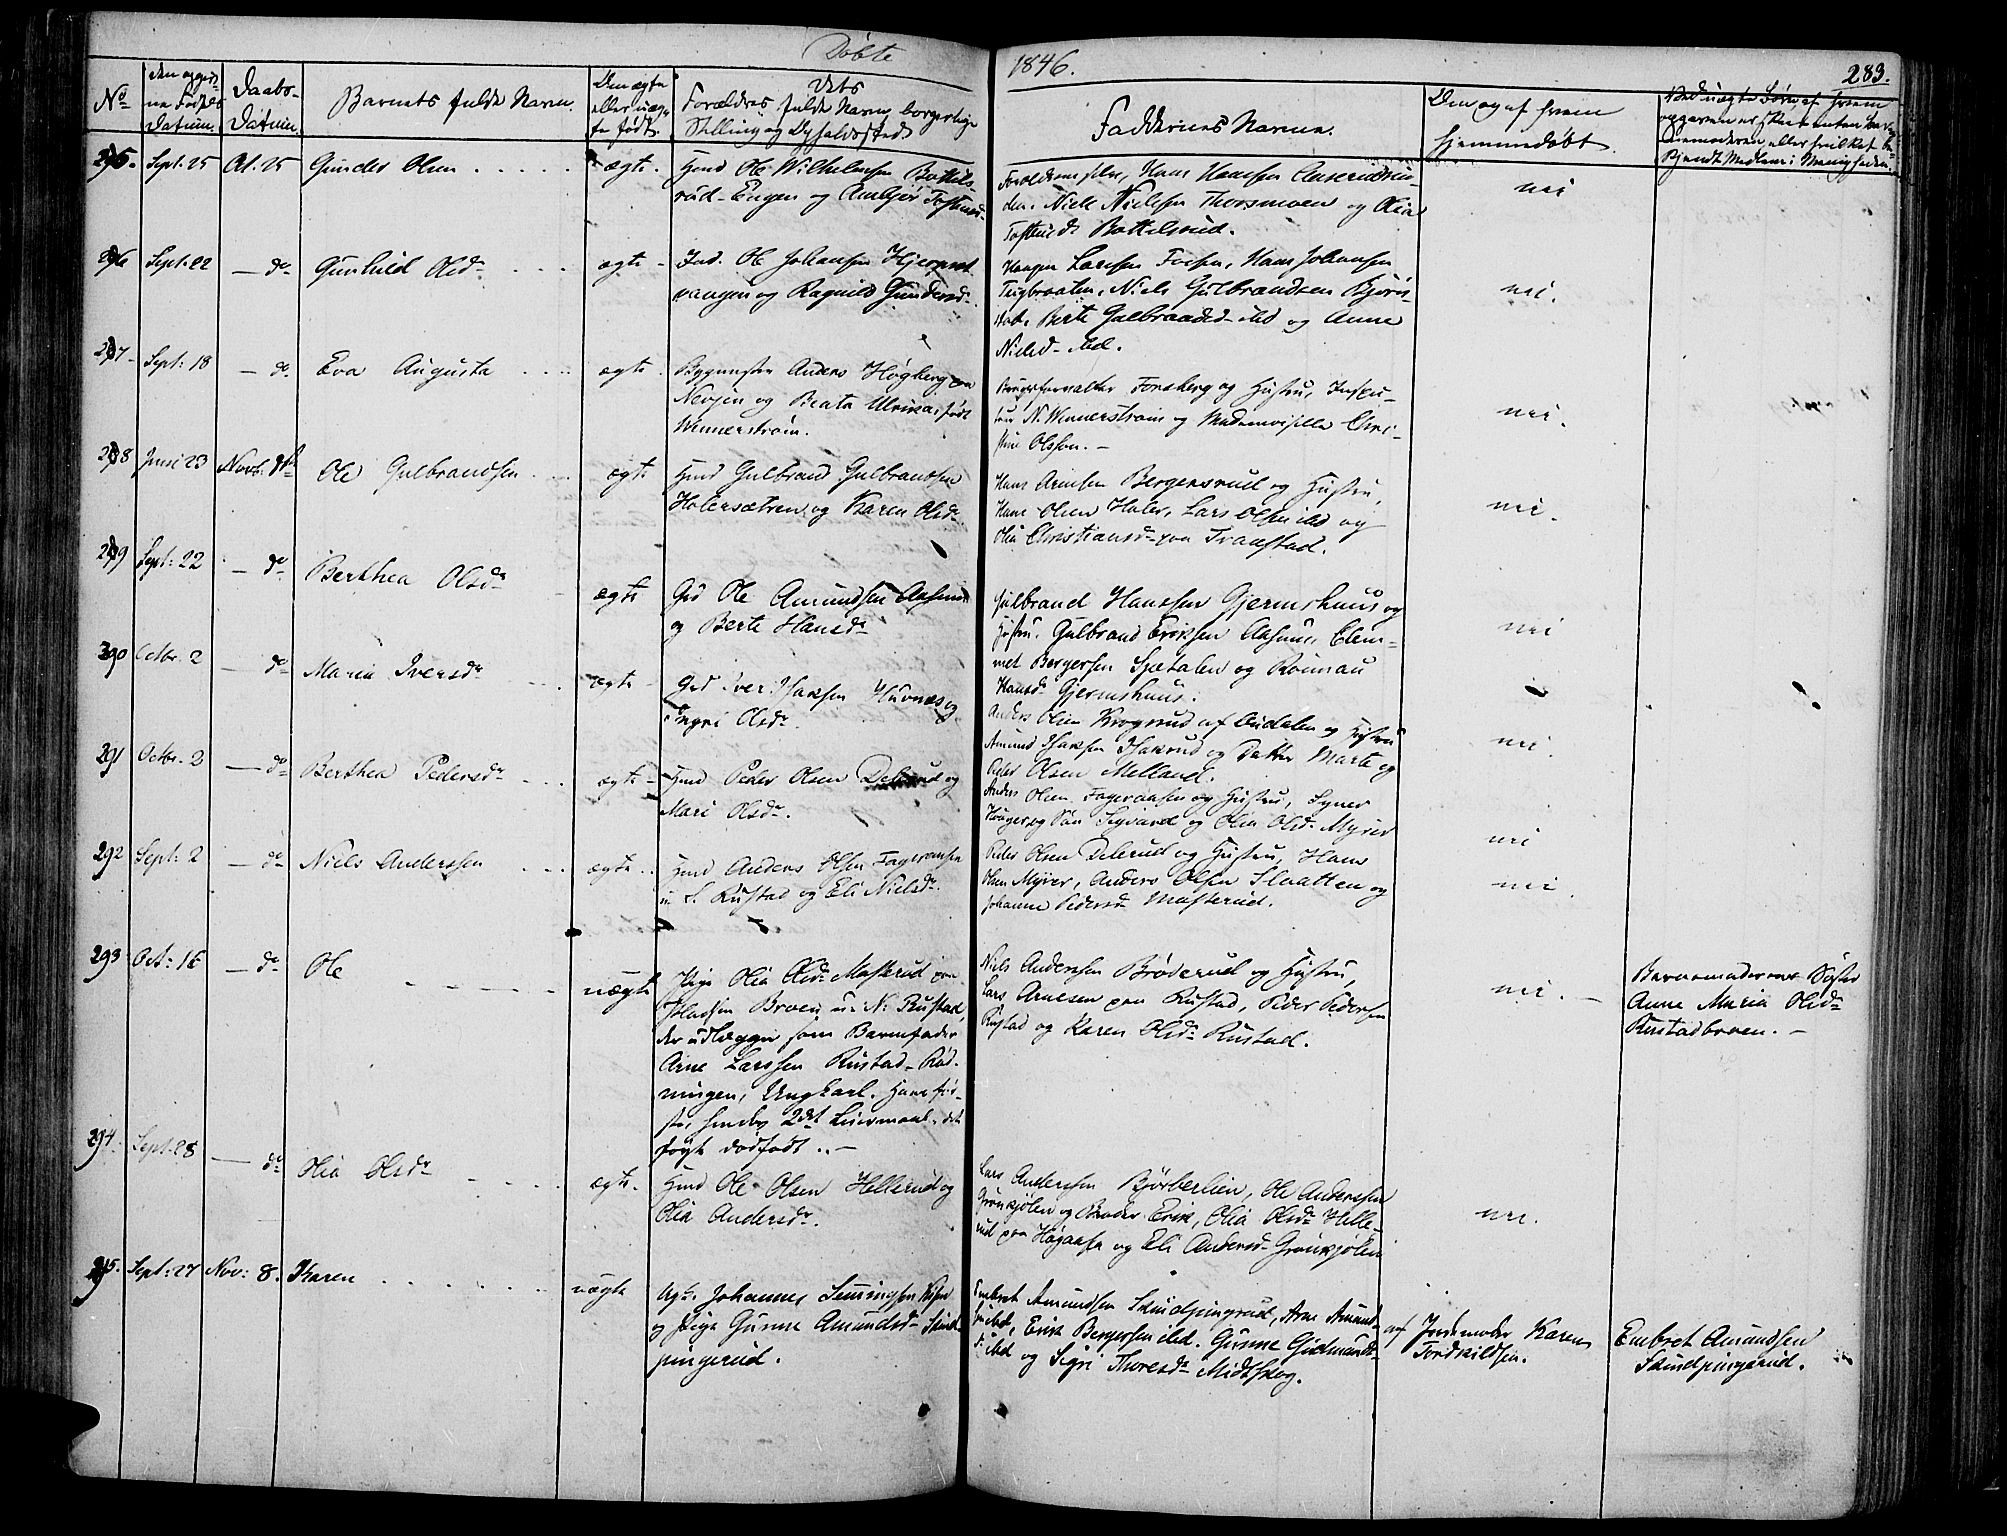 Døbte
1846.
283.
No
Daabs-
Datum
Barnets fulde Navn.
Den ægte
eller uæg-
te født.
Dets
Forældres fulde Navn, borgerlige
Stilling og Opholdssted
Faddernes Navne.
Den og af hvem
hjemmedøbt.
Sept. 25 Oct. 25 Gunder Olsen
ægte.
Huusmd Ole Wilhelmsen Bottels-
rud-Engen og
Forældrene selv, Hans Hanssen
Niels Nielsen Thorsmoen og Olia
Bottelsrud.
nei
Sept: 22 — do Gunhild Olsdr
ægte
Ind. Ole Johansen
og Ragnild Gundersdr
Haagen Larssen Fossen, Hans Johansen
Teigbraaten, Niels Gulbrandsen
Berte Gulbrandsd ibd og Anne
Nielsd. ibd.
nei.
287 Sept: 18 — do. Eva Augusta
ægte.
Anders Høgberg paa
og Beata Ulrica, født
Wennerstrøm.
Forsberg og Hustru,
N. Wennerstrøm og Mademoiselle Chri-
stine Olssen. —
nei.
288 Juni 23 Novb: 1ste Ole Gulbrandsen
ægte
Huusmd Gulbrand Gulbrandsen
Holersætren og Karen Olsdr
Hans Arnesen Bergersrud og Hustru,
Hans Olsen Holer, Lars Olsen ibd og
Olia Christiansdr paa Transtad.
nei.
289 Sept: 22 — do Berthea Olsdr
ægte
Grd Ole Amundsen Aasmu
og Berte Hansdr
Gulbrand Hanssen Gjermshuus og
Hustru. Gulbrand Eriksen Aasmu, Clem-
met Bergersen Sætalen og
Hansdr Gjermshuus.
nei
290 Octbr. 2 — do Maria Iversdr
ægte
Grd Iver Isaksen og
Ingri Olsdr.
Anders Olsen Krogsrud af Audalen og Hustru
Amund Isaksen Isakrud og Datter Marte og
Peder Olsen Melland.
nei.
291 Octbr. 2 — do Berthea Pedersdr
ægte
Huusmd Peder Olsen Delerud og
Mari Olsdr.
Anders Olsen Fageraasen og Hustru, Syver
og Søn Sigvard og Olia Olsdr Myrer
nei
292 Sept: 2 — do Niels Anderssen
ægte.
Huusmd Anders Olsen Fageraasen
u. S. Rustad og Eli Nielsdr.
Peder Olsen Delerud og Hustru, Hans
Olsen Myrer, Anders Olsen Slaatten og
Johanne Pedersdr Masterud.
nei.
293 Oct: 16 — do Ole
uægte
Pige Olia Olsdr Masterud paa
Pladsen Broen u. N. Rustad,
der udlægger som Barnefader
Arne Larssen Rustad-Rød-
ningen, Ungkarl. Hans før-
ste, hendes 2det Leiermaal. det
dødfødt. —
Niels Anderssen Brøderud og Hustru,
Lars Arnesen paa Rustad, Peder Pedersen
Rustad og Karen Olsdr Rustad.
nei. —
Barnemoderens Søster
Anne Maria Olsdr
Rustadbroen. —
294. Sept. 28 — do Olia Olsdr
ægte.
Huusmd Ole Olsen Hellerud og
Olia Andersdr.
Lars Anderssen Bjørberlien, Ole Anderssen
Grønkjølen og Broder Erik, Olia Olsdr Helle-
rud paa Høgaasen og Eli Andersd Grønkjølen
nei.
295. Sept: 27 Nov: 8. Karen
uægte
Johannes
og Pige Gunne Amundsd. Skind-
pungrud.
Embret Amundsen Skindpungrud, Arne Amund-
sen ibd, Erik Bergersen ibd. Gunne Gudmunds-
d: ibd og Sigri Thoresdr Midtskog.
af Jordemoder Karen
Torkildsen.
Embret Amundsen
Skindpungrud.